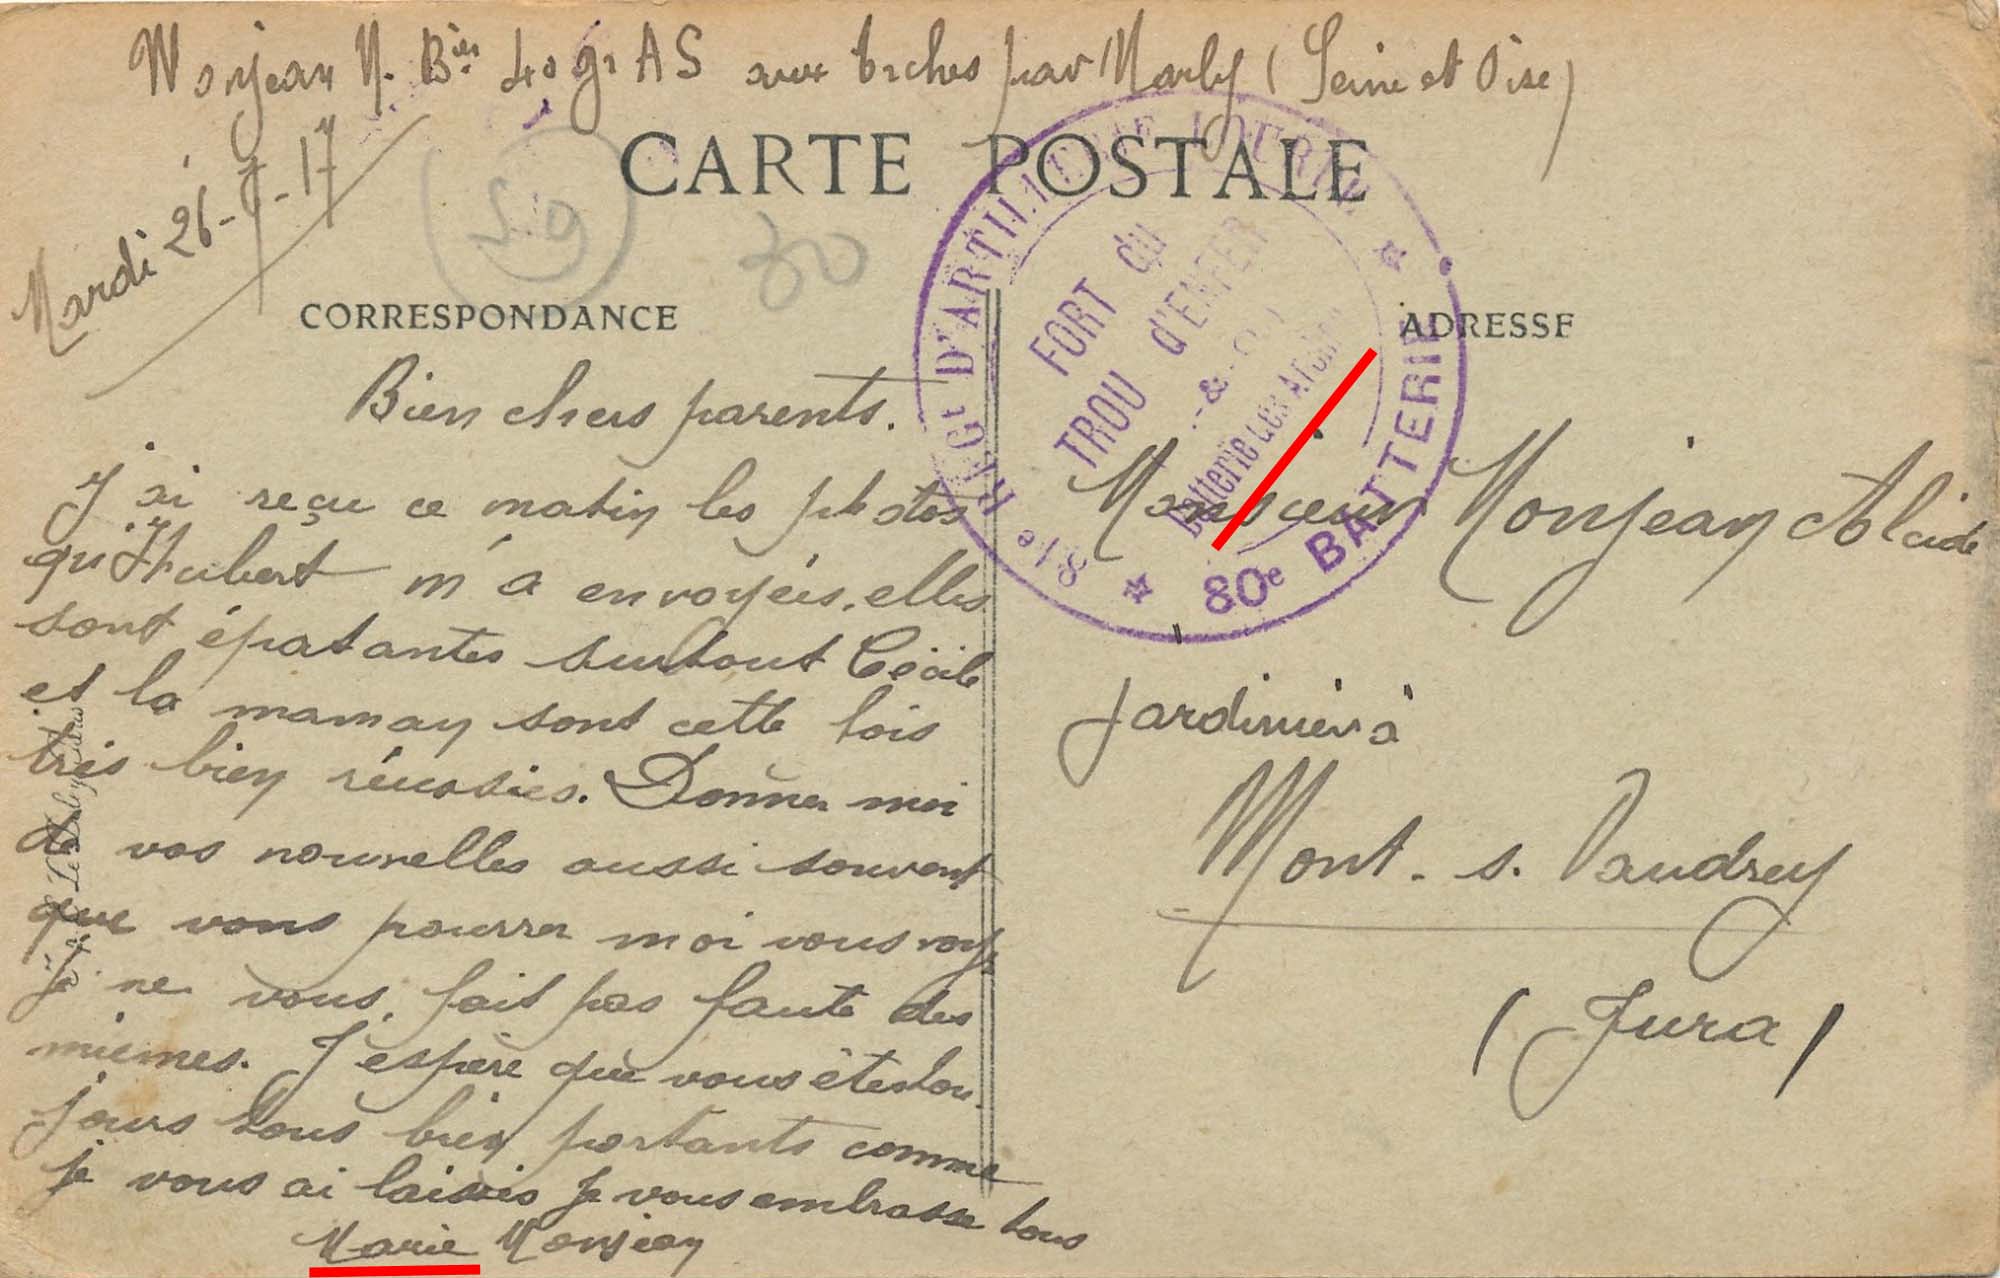 Monjean M. Bie 40 gr AS aux Arches par Marly (Seine et Oise)
Mardi 26-7-17
CARTE POSTALE
S.9
30
CORRESPONDANCE
ADRESSE
81e REGt D'ARTILLERIE LOURDE
80e BATTERIE
FORT du
TROU d'ENFER
Batterie des Arches
Bien chers parents.
J'ai reçu ce matin les photos
qu'Hubert m'a envoyées, elles
sont épatantes surtout Cécile
et la maman sont cette fois
très bien réussies. Donner moi
de vos nouvelles aussi souvent
que vous pourrer moi vous voyez
je ne vous fait pas faute des
miennes. J'espère que vous êtes tou-
jours tous bien portants comme
je vous ai laissés Je vous embrasse tous
Marie Monjean
Monsieur Monjean Alcide
jardinier à
Mont. s. Vaudrey
(Jura)